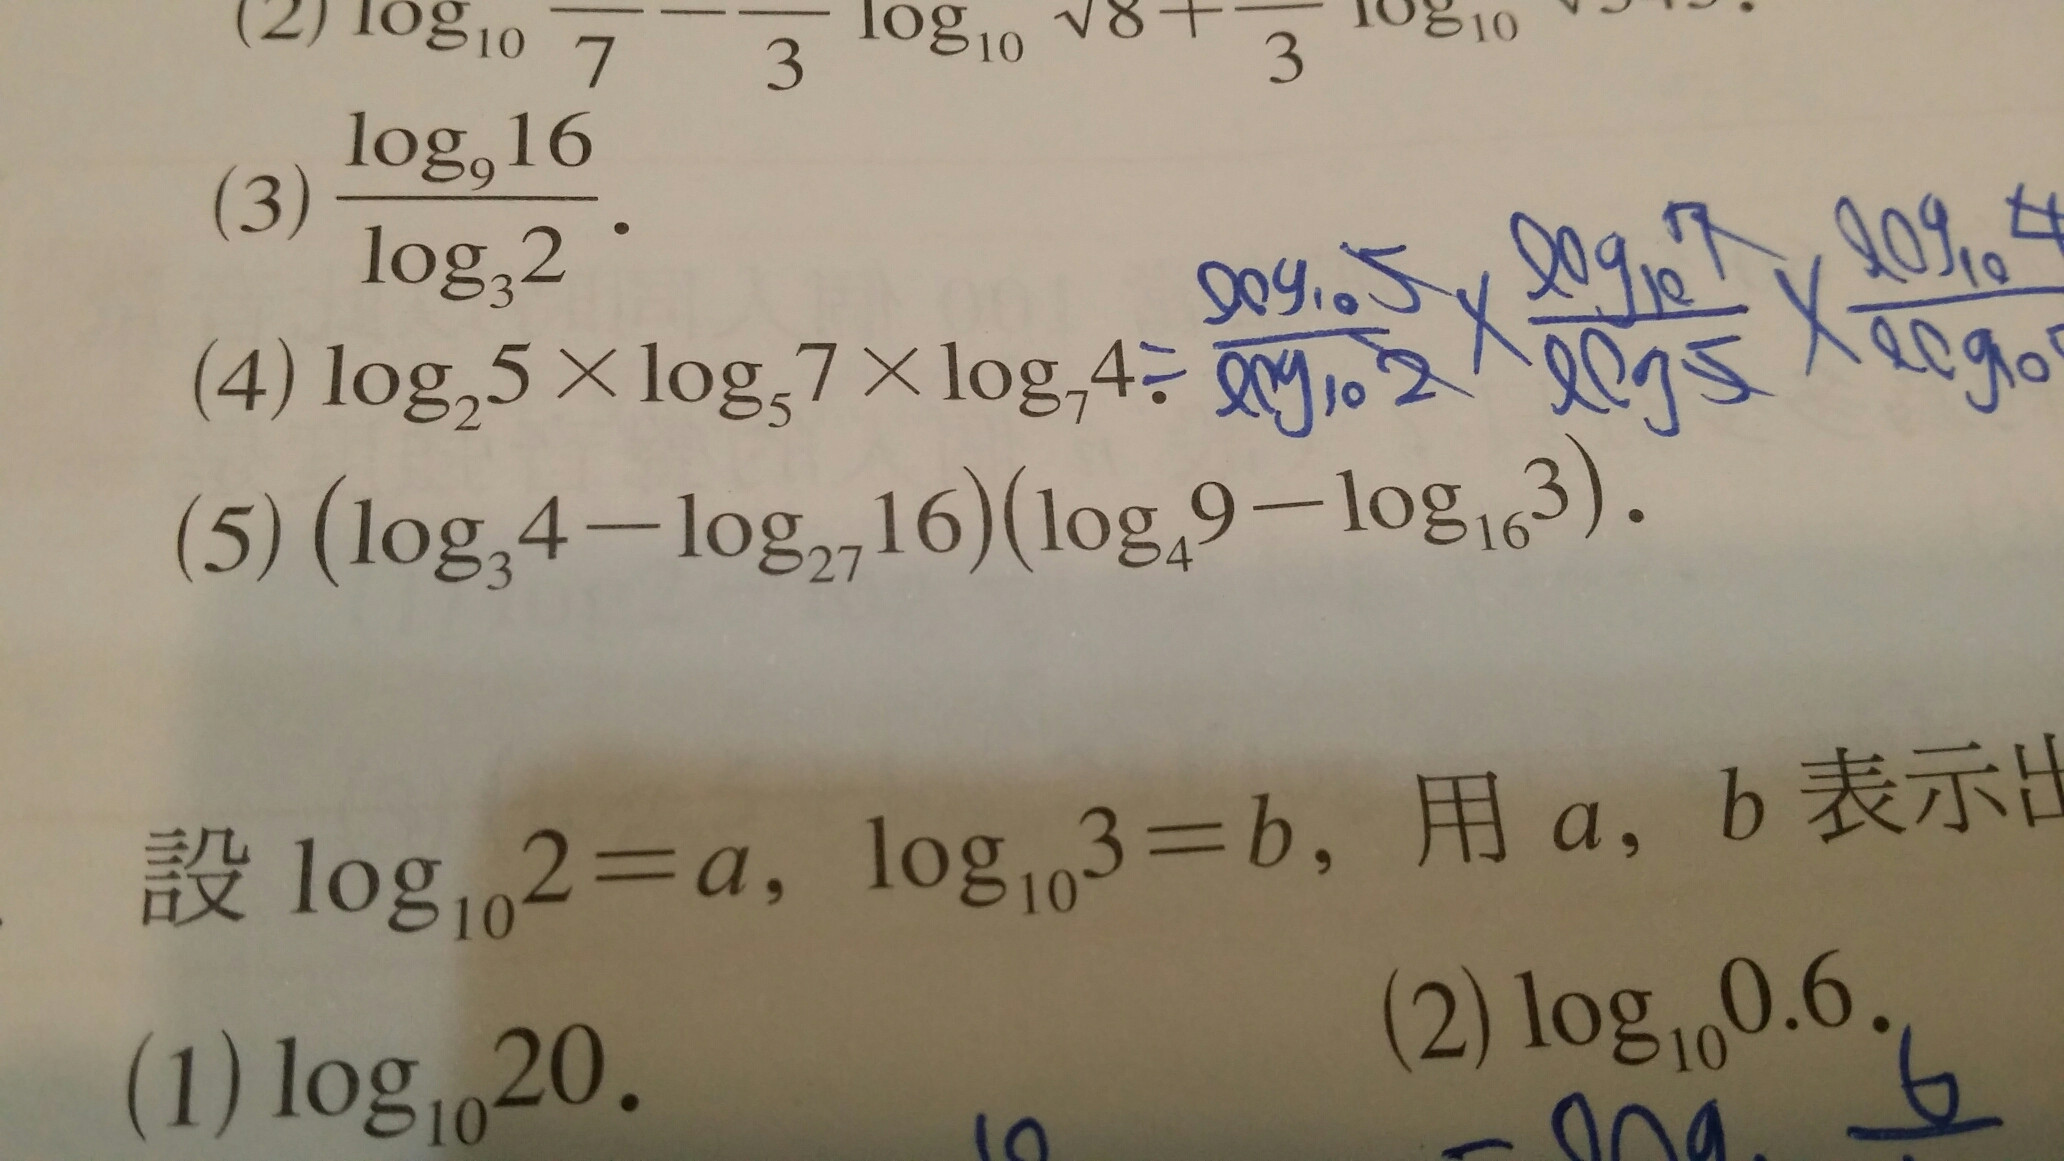 (2) log₁₀ —/7 − —/3 log₁₀ √8 + —/3 log₁₀
(3) log₉16 / log₃2 .
(4) log₂5 × log₅7 × log₇4 = log₁₀5 / log₁₀2 × log₁₀7 / log5 × log₁₀4 / log₁₀
(5) (log₃4 − log₂₇16)(log₄9 − log₁₆3).
設 log₁₀2 = a, log₁₀3 = b, 用 a, b 表示出
(1) log₁₀20. (2) log₁₀0.6.
10 = log 6